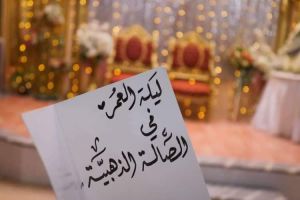 ليلة العمر
في
الصالة الذهبيَّة